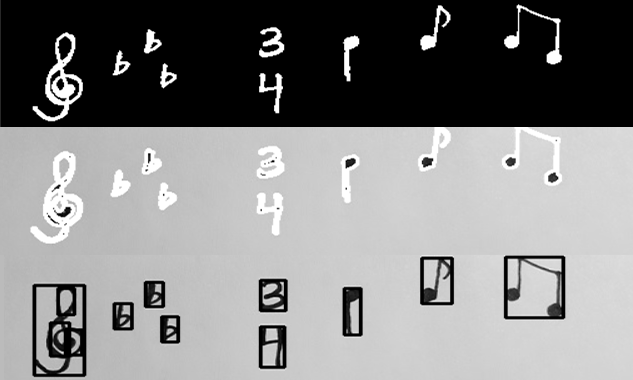 3
4
3
4
3
4